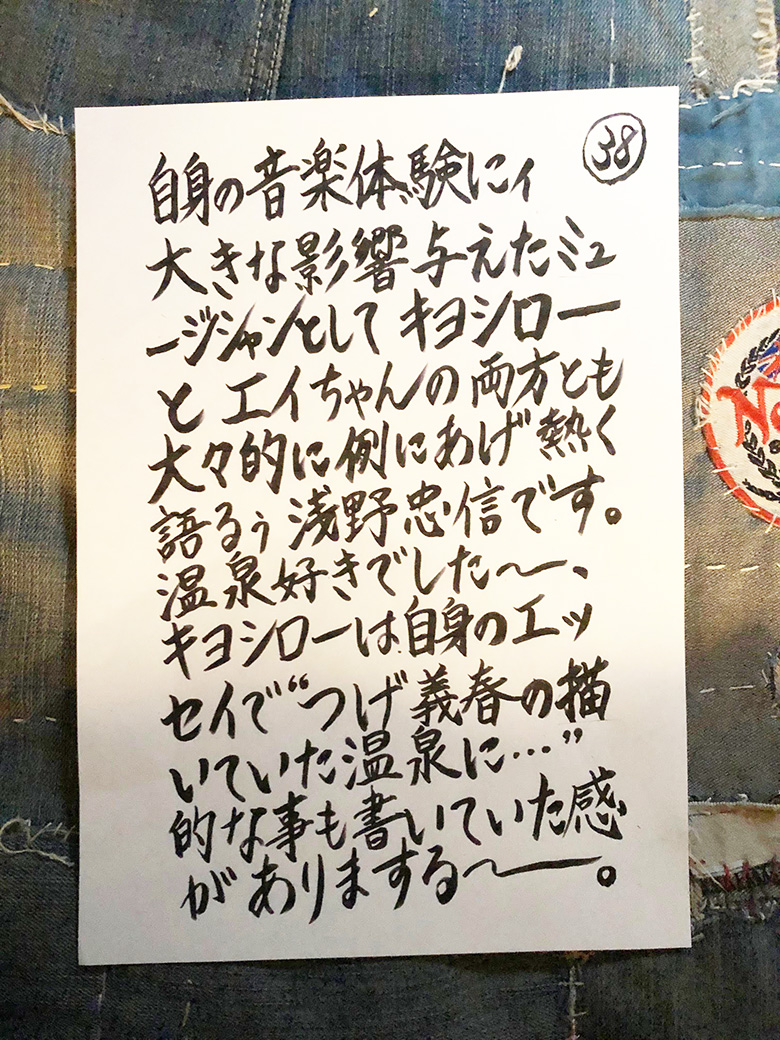 38
自身の音楽体験にィ
大きな影響与えたミュ
ージシャンとして キヨシロー
と エイちゃんの両方とも
大々的に例にあげ 熱く
語るぅ 浅野忠信です。
温泉好きでした〜、
キヨシローは自身のエッ
セイで“つげ義春の描
いていた温泉に…”
的な事も書いていた感
がありまする〜ー。